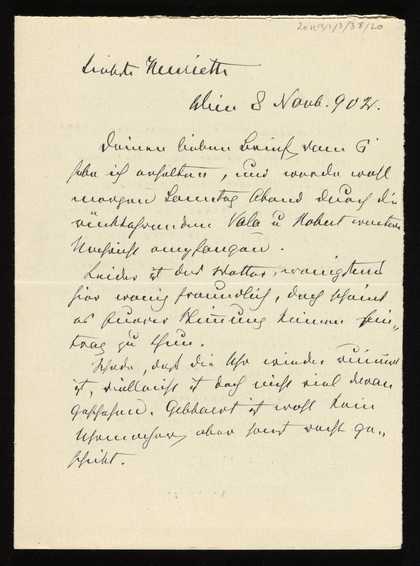 Liebste Henriette
Wien 8 Novb. 902.
Deinen lieben Brief vom 6
habe ich erhalten, und werde wohl
morgen Samstag Abend durch die
rückkehrenden Vala u Robert weitere
Nachricht empfangen.
Leider ist das Wetter, wenigstens
hier wenig freundlich, doch scheint
es Eurer Stimmung keinen Ein-
trag zu thun.
Schade, daß die Uhr wieder
ist, vielleicht ist doch nicht viel daran
geschehen. Gebhardt ist wohl kein
Uhrmacher, aber sonst recht ge-
schickt.